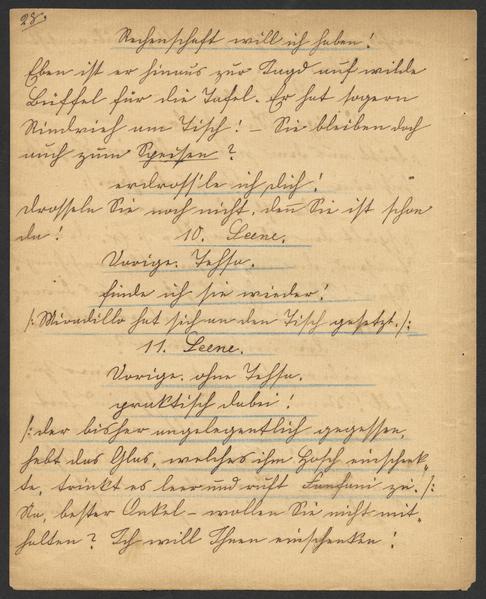 28.
Rechenschaft will ich haben!
Eben ist er hinaus zur Jagd auf wilde
Büffel für die Tafel. Er hat so gern
Rindvieh am Tisch! – Sie bleiben doch
auch zum Speisen?
erdross'le ich dich!
drosseln Sie noch nicht, den̄ Sie ist schon
da!
10. Scene.
Vorige. Tehsa.
finde ich sie wieder!
/: Miradillo hat sich an den Tisch gesetzt. :/
11. Scene.
Vorige. ohne Tehsa.
praktisch dabei!
/: der bisher angelegentlich gegessen,
hebt das Glas, welches ihm Hosch einschenk-
te, trinkt es leer und ruft Fanfani zu. :/
Na, bester Onkel – wollen Sie nicht mit-
halten? Ich will Ihnen einschenken!